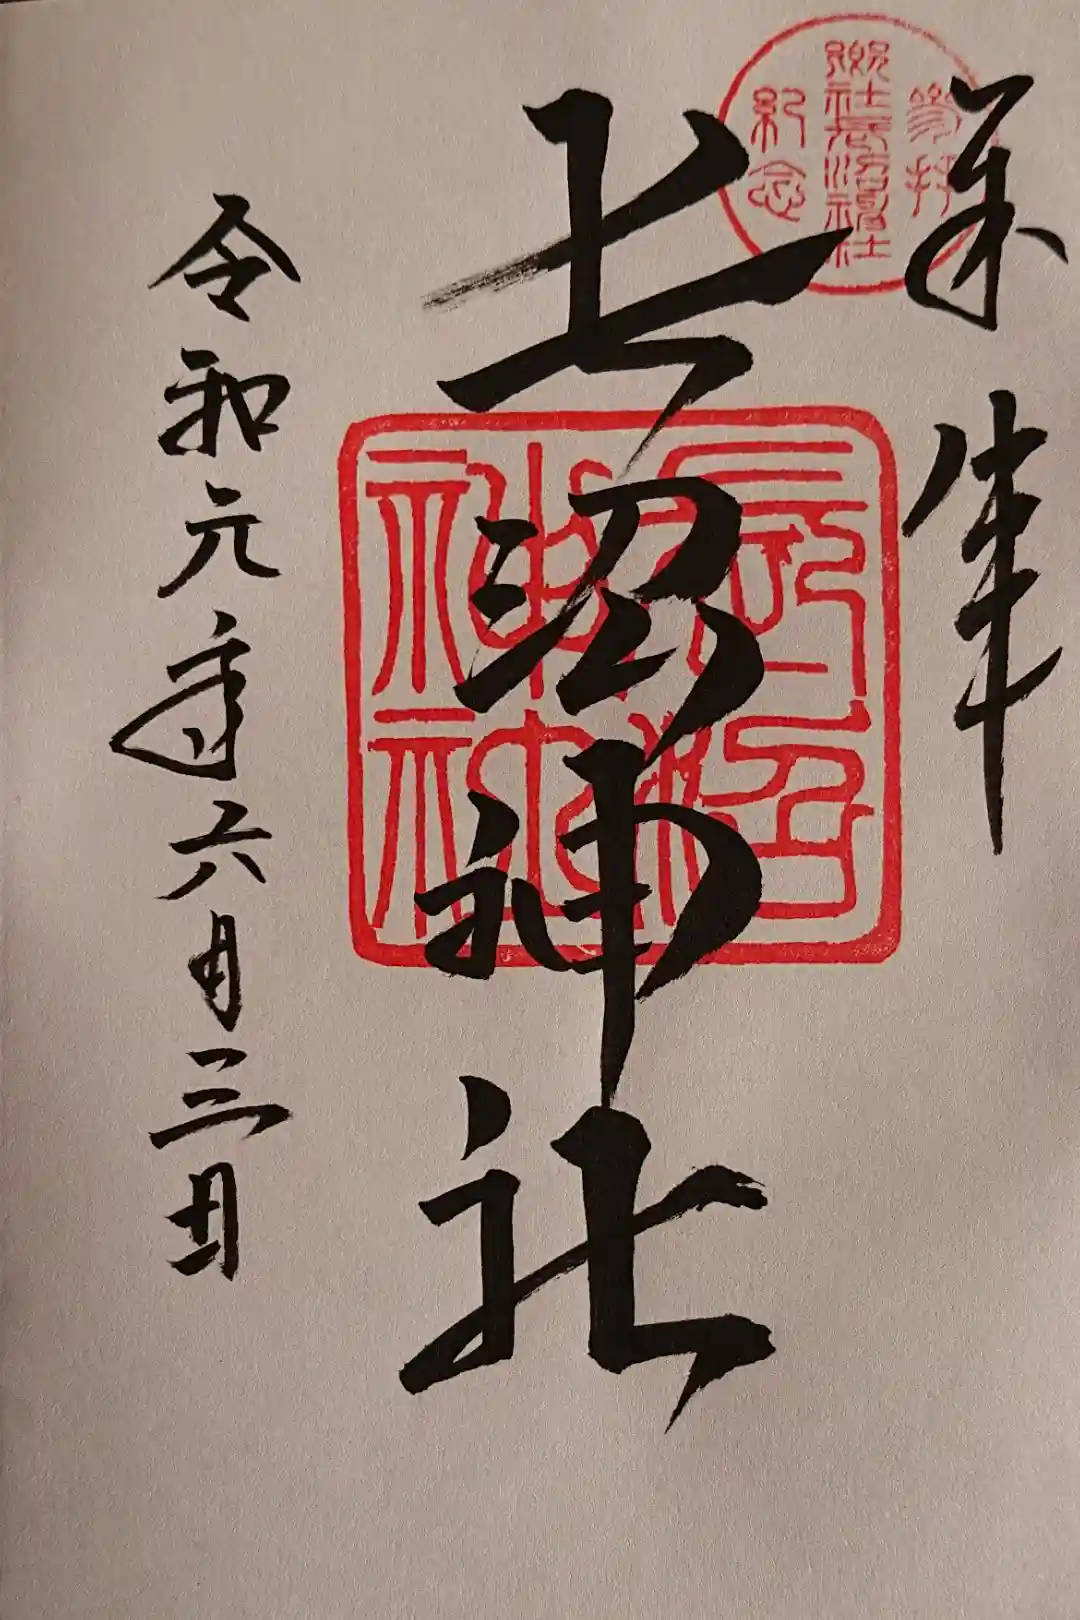 奉拝
參拜
郷社長沼神社
紀念
長沼神社
長沼
神社
令和元年六月三日